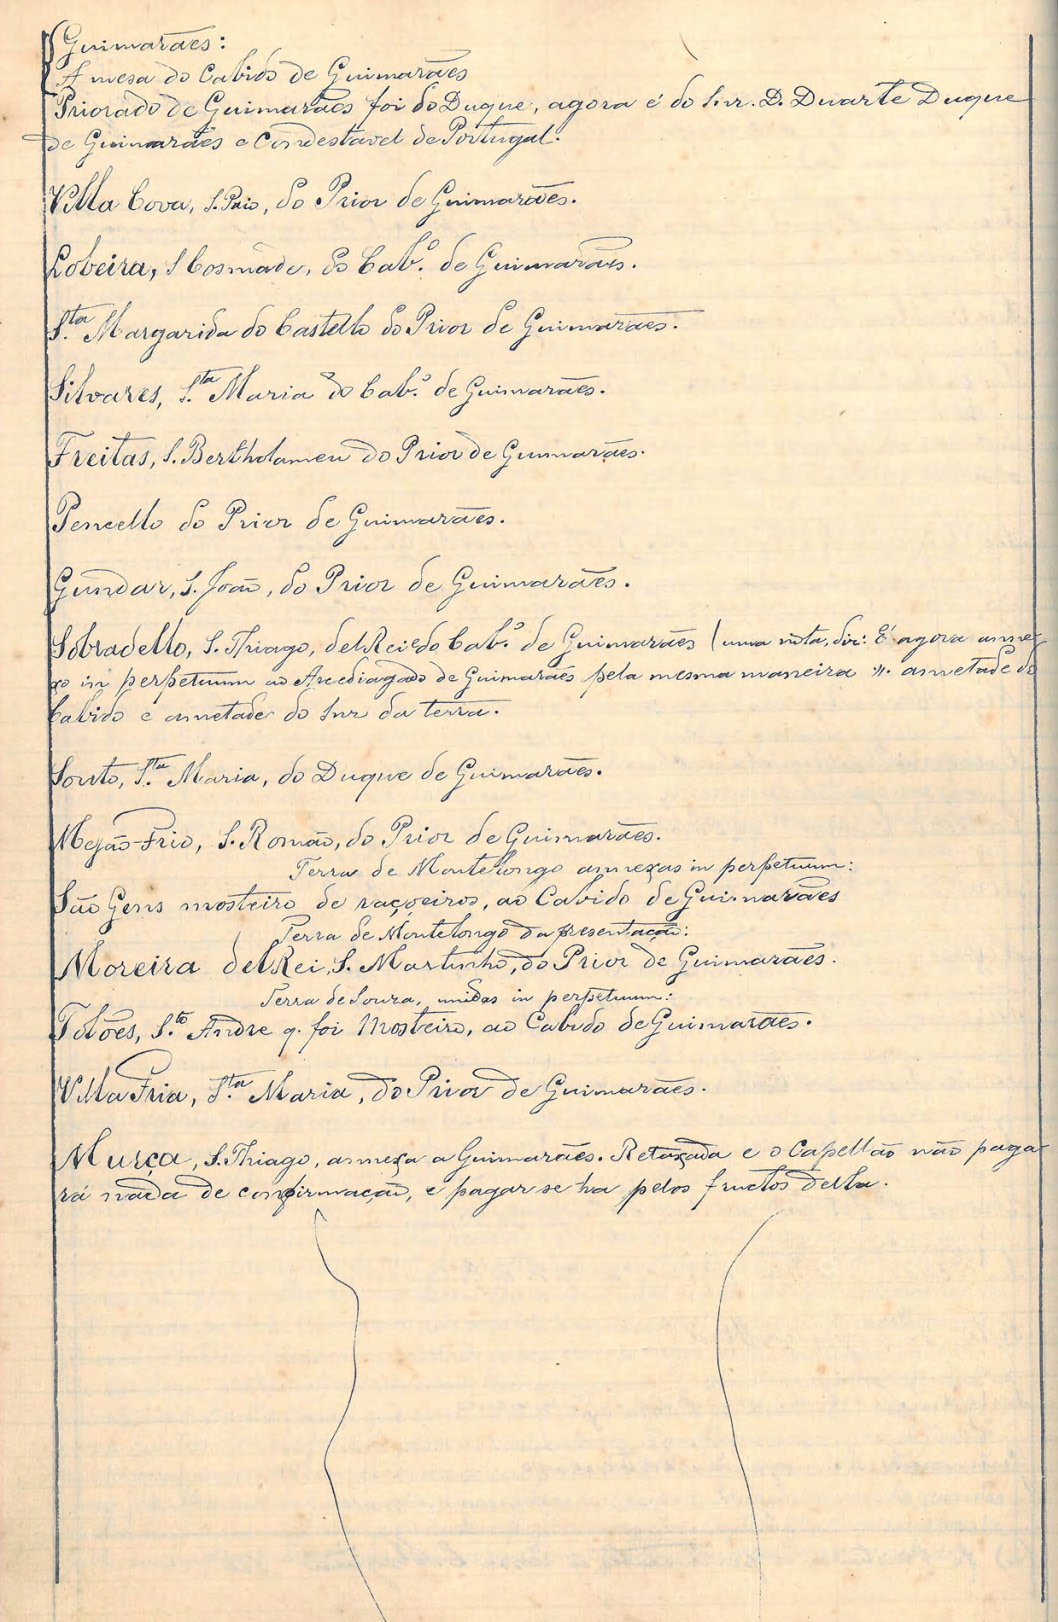 Guimarães:
A mesa do Cabido de Guimarães
Priorado de Guimarães foi do Duque, agora é do Snr. D. Duarte Duque
de Guimarães e Condestavel de Portugal.
Villa Cova, S. Paio, do Prior de Guimarães.
Lobeira, S Cosmade, do Cab.º de Guimarães.
S.ta Margarida do Castello do Prior de Guimarães.
Silvares, S.ta Maria do Cab.º de Guimarães.
Freitas, S. Bertholameu do Prior de Guimarães.
Pencello do Prior de Guimarães.
Gundar, S. João, do Prior de Guimarães.
Sobradello, S. Thiago, delRei e do Cab.º de Guimarães (uma nota, diz: É agora anne-
xo in perpetuum ao Arcediagado de Guimarães pela mesma maneira s. ametade do
Cabido e ametade do Snr da terra.
Souto, S.ta Maria, do Duque de Guimarães.
Mejão-Frio, S. Romão, do Prior de Guimarães.
Terra de Montelongo annexas in perpetuum:
São Gens mosteiro de raçoeiros, ao Cabido de Guimarães
Terra de Montelongo da presentação:
Moreira delRei, S. Martinho, do Prior de Guimarães.
Terra de Souza, unidas in perpetuum:
Tolões, S.to Andre q. foi Mosteiro, ao Cabido de Guimarães.
Villa Fria, S.ta Maria, do Prior de Guimarães.
Murça, S. Thiago, annexa a Guimarães. Retaxada e o Capellão não paga-
rá nada de confirmação, e pagar se ha pelos fructos della.